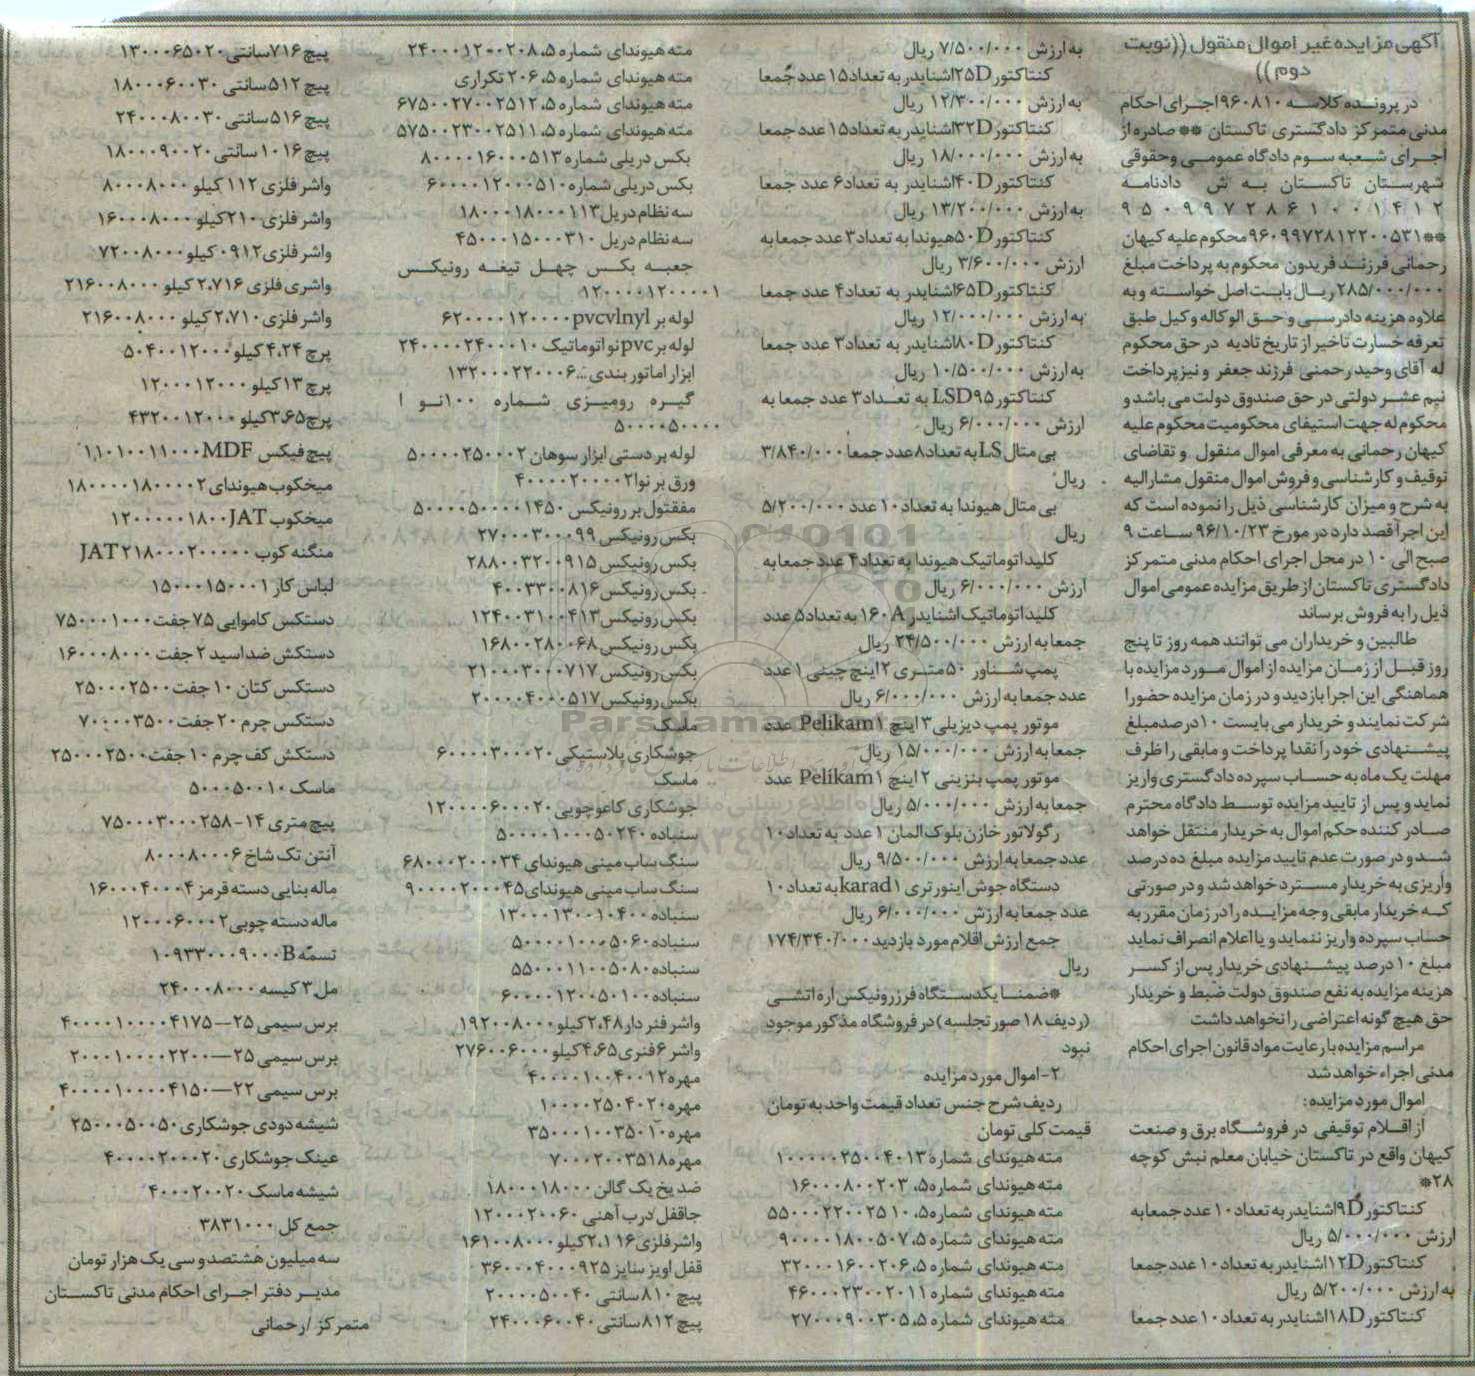 آگهی مزایده غیر اموال منقول ((نوبت
دوم))
در پرونده کلاسه ۹۶۰۸۱۰ اجرای احکام
مدنی متمرکز دادگستری تاکستان ** صادره از
اجرای شعبه سوم دادگاه عمومی وحقوقی
شهرستان تاکستان به ش دادنامه
۹۵۰۹۹۷۲۸۶۱۰۰۱۴۱۲
**۹۶۰۹۹۷۲۸۱۲۲۰۰۵۳۱ محکوم علیه کیهان
رحمانی فرزند فریدون محکوم به پرداخت مبلغ
۲۸۵/۰۰۰/۰۰۰ ریال بابت اصل خواسته و به
علاوه هزینه دادرسی و حق الوکاله وکیل طبق
تعرفه خسارت تاخیر از تاریخ تادیه در حق محکوم
له آقای وحید رحمنی فرزند جعفر و نیز پرداخت
نیم عشر دولتی در حق صندوق دولت می باشد و
محکوم له جهت استیفای محکومیت محکوم علیه
کیهان رحمانی به معرفی اموال منقول و تقاضای
توقیف و کارشناسی و فروش اموال منقول مشارالیه
به شرح و میزان کارشناسی ذیل را نموده است که
این اجرا قصد دارد در مورخ ۹۶/۱۰/۲۳ ساعت ۹
صبح الی ۱۰ در محل اجرای احکام مدنی متمرکز
دادگستری تاکستان از طریق مزایده عمومی اموال
ذیل را به فروش برساند
طالبین و خریداران می توانند همه روز تا پنج
روز قبل از زمان مزایده از اموال مورد مزایده با
هماهنگی این اجرا بازدید و در زمان مزایده حضورا
شرکت نمایند و خریدار می بایست ۱۰ درصد مبلغ
پیشنهادی خود را نقدا پرداخت و مابقی را ظرف
مهلت یک ماه به حساب سپرده دادگستری واریز
نماید و پس از تایید مزایده توسط دادگاه محترم
صادر کننده حکم اموال به خریدار منتقل خواهد
شد و در صورت عدم تایید مزایده مبلغ ده درصد
واریزی به خریدار مسترد خواهد شد و در صورتی
که خریدار مابقی وجه مزایده را در زمان مقرر به
حساب سپرده واریز ننماید و یا اعلام انصراف نماید
مبلغ ۱۰ درصد پیشنهادی خریدار پس از کسر
هزینه مزایده به نفع صندوق دولت ضبط و خریدار
حق هیچ گونه اعتراضی را نخواهد داشت
مراسم مزایده با رعایت مواد قانون اجرای احکام
مدنی اجراء خواهد شد
اموال مورد مزایده:
از اقلام توقیفی در فروشگاه برق و صنعت
کیهان واقع در تاکستان خیابان معلم نبش کوچه
۲۸*
کنتاکتور ۹D اشنایدر به تعداد ۱۰ عدد جمعا به
ارزش ۵/۰۰۰/۰۰۰ ریال
کنتاکتور ۱۲D اشنایدر به تعداد ۱۰ عدد جمعا
به ارزش ۵/۲۰۰/۰۰۰ ریال
کنتاکتور ۱۸D اشنایدر به تعداد ۱۰ عدد جمعا
به ارزش ۷/۵۰۰/۰۰۰ ریال
کنتاکتور ۲۵D اشنایدر به تعداد ۱۵ عدد جمعا
به ارزش ۱۲/۳۰۰/۰۰۰ ریال
کنتاکتور ۳۲D اشنایدر به تعداد ۱۵ عدد جمعا
به ارزش ۱۸/۰۰۰/۰۰۰ ریال
کنتاکتور ۴۰D اشنایدر به تعداد ۶ عدد جمعا
به ارزش ۱۳/۲۰۰/۰۰۰ ریال
کنتاکتور ۵۰D هیوندا به تعداد ۳ عدد جمعا به
ارزش ۳/۶۰۰/۰۰۰ ریال
کنتاکتور ۶۵D اشنایدر به تعداد ۴ عدد جمعا
به ارزش ۱۲/۰۰۰/۰۰۰ ریال
کنتاکتور ۸۰D اشنایدر به تعداد ۳ عدد جمعا
به ارزش ۱۰/۵۰۰/۰۰۰ ریال
کنتاکتور LSD۹۵ به تعداد ۳ عدد جمعا به
ارزش ۶/۰۰۰/۰۰۰ ریال
بی متال LS به تعداد ۸ عدد جمعا ۳/۸۴۰/۰۰۰
ریال
بی متال هیوندا به تعداد ۱۰ عدد ۵/۲۰۰/۰۰۰
ریال
کلید اتوماتیک هیوندا به تعداد ۴ عدد جمعا به
ارزش ۶/۰۰۰/۰۰۰ ریال
کلید اتوماتیک اشنایدر ۱۶۰A به تعداد ۵ عدد
جمعا به ارزش ۲۴/۵۰۰/۰۰۰ ریال
پمپ شناور ۵۰ متری ۲ اینچ چینی ۱ عدد
عدد جمعا به ارزش ۶/۰۰۰/۰۰۰ ریال
موتور پمپ دیزیلی ۳ اینچ Pelikam ۱ عدد
جمعا به ارزش ۱۵/۰۰۰/۰۰۰ ریال
موتور پمپ بنزینی ۲ اینچ Pelikam ۱ عدد
جمعا به ارزش ۵/۰۰۰/۰۰۰ ریال
رگولاتور خازن بلوک المان ۱ عدد به تعداد ۱۰
عدد جمعا به ارزش ۹/۵۰۰/۰۰۰ ریال
دستگاه جوش اینورتری karad ۱ به تعداد ۱۰
عدد جمعا به ارزش ۶/۰۰۰/۰۰۰ ریال
جمع ارزش اقلام مورد بازدید ۱۷۴/۳۴۰/۰۰۰
ریال
*ضمنا یکدستگاه فرز رونیکس اره اتشی
(ردیف ۱۸ صورتجلسه) در فروشگاه مذکور موجود
نبود
۲- اموال مورد مزایده
ردیف شرح جنس تعداد قیمت واحد به تومان
قیمت کلی تومان
مته هیوندای شماره ۱۳ ۴۰ ۲۵۰۰ ۱۰۰۰۰۰
مته هیوندای شماره ۲۰۳،۵ ۸۰۰ ۱۶۰۰۰
مته هیوندای شماره ۱۰،۵ ۲۵ ۲۲۰۰ ۵۵۰۰۰
مته هیوندای شماره ۵۰۷،۵ ۱۸۰۰ ۹۰۰۰۰
مته هیوندای شماره ۲۰۶،۵ ۱۶۰۰ ۳۲۰۰۰
مته هیوندای شماره ۲۰۱۱ ۲۳۰۰ ۴۶۰۰۰
مته هیوندای شماره ۳۰۵،۵ ۹۰۰ ۲۷۰۰۰
مته هیوندای شماره ۲۰۸،۵ ۱۲۰۰ ۲۴۰۰۰
مته هیوندای شماره ۲۰۶،۵ تکراری
مته هیوندای شماره ۲۵۱۲،۵ ۲۷۰۰ ۶۷۵۰۰
مته هیوندای شماره ۲۵۱۱،۵ ۲۳۰۰ ۵۷۵۰۰
بکس دریلی شماره ۵۱۳ ۱۶۰۰۰ ۸۰۰۰۰
بکس دریلی شماره ۵۱۰ ۱۲۰۰۰ ۶۰۰۰۰
سه نظام دریل ۱۱۳ ۱۸۰۰۰ ۱۸۰۰۰
سه نظام دریل ۳۱۰ ۱۵۰۰۰ ۴۵۰۰۰
جعبه بکس چهل تیغه رونیکس
۱ ۱۲۰۰۰۰ ۱۲۰۰۰۰
لوله بر pvcvlnyl
لوله بر pvc نو اتوماتیک ۱۰ ۲۴۰۰۰ ۲۴۰۰۰۰
ابزار اماتور بندی ...۶ ۲۲۰۰۰ ۱۳۲۰۰۰
گیره رومیزی شماره ۱۰۰ نو ۱
۵۰۰۰۰ ۵۰۰۰۰
لوله بر دستی ابزار سوهان ۲ ۲۵۰۰۰ ۵۰۰۰۰
ورق بر نوا ۲ ۲۰۰۰۰ ۴۰۰۰۰
مفقتول بر رونیکس ۱۴۵۰ ۵۰۰۰۰ ۵۰۰۰۰
بکس رونیکس ۹۹ ۳۰۰۰ ۲۷۰۰۰
بکس رونیکس ۹۱۵ ۳۲۰۰ ۲۸۸۰۰
بکس رونیکس ۸۱۶
بکس رونیکس ۴۱۳ ۳۱۰۰ ۱۲۴۰۰
بکس رونیکس ۶۸ ۲۸۰۰ ۱۶۸۰۰
بکس رونیکس ۷۱۷ ۳۰۰۰ ۲۱۰۰۰
بکس رونیکس ۵۱۷ ۴۰۰۰ ۲۰۰۰۰
ماسک
جوشکاری پلاستیکی ۲۰ ۳۰۰۰ ۶۰۰۰۰
ماسک
جوشکاری کاغوچویی ۲۰ ۶۰۰۰ ۱۲۰۰۰۰
سنباده ۵۰۲۴۰ ۱۰۰۰ ۵۰۰۰۰
سنگ ساب مینی هیوندای ۳۴ ۲۰۰۰ ۶۸۰۰۰
سنگ ساب مینی هیوندای ۴۵ ۲۰۰۰ ۹۰۰۰۰
سنباده ۱۰۴۰۰ ۱۳۰۰ ۱۳۰۰۰
سنباده ۵۰۶۰ ۱۰۰۰ ۵۰۰۰۰
سنباده ۵۰۸۰ ۱۱۰۰ ۵۵۰۰۰
سنباده ۵۰۱۰۰ ۱۲۰۰ ۶۰۰۰۰
واشر فنر دار ۲،۴۸ کیلو ۸۰۰۰ ۱۹۲۰۰
واشر ۶ فنری ۴،۶۵ کیلو ۶۰۰۰ ۲۷۶۰۰
مهره ۴۰۰۱۲ ۱۰۰ ۴۰۰۰۰
مهره ۴۰۲۰ ۲۵۰ ۱۰۰۰۰
مهره ۳۵۰۱۰ ۱۰۰ ۳۵۰۰۰
مهره ۳۵۱۸ ۲۰۰ ۷۰۰۰
ضد یخ یک گالن ۱۸۰۰۰ ۱۸۰۰۰
جاقفل درب آهنی ۶۰ ۲۰۰ ۱۲۰۰۰
واشر فلزی ۲،۱۱۶ کیلو ۸۰۰۰ ۱۶۱۰۰
قفل اویز سنایز ۹۲۵ ۴۰۰۰ ۳۶۰۰۰
پیچ ۸۱۰ سانتی ۴۰ ۵۰۰ ۲۰۰۰۰
پیچ ۸۱۲ سانتی ۴۰ ۶۰۰ ۲۴۰۰۰
پیچ ۷۱۶ سانتی ۲۰ ۶۵۰ ۱۳۰۰۰
پیچ ۵۱۲ سانتی ۳۰ ۶۰۰ ۱۸۰۰۰
پیچ ۵۱۶ سانتی ۳۰ ۸۰۰ ۲۴۰۰۰
پیچ ۱۰۱۶ سانتی ۲۰ ۹۰۰ ۱۸۰۰۰
واشر فلزی ۱۱۲ کیلو ۸۰۰۰ ۸۰۰۰
واشر فلزی ۲۱۰ کیلو ۸۰۰۰ ۱۶۰۰۰
واشر فلزی ۰۹۱۲ کیلو ۸۰۰۰ ۷۲۰۰
واشری فلزی ۲،۷۱۶ کیلو ۸۰۰۰ ۲۱۶۰۰
واشر فلزی ۲،۷۱۰ کیلو ۸۰۰۰ ۲۱۶۰۰
پرچ ۴،۲۴ کیلو ۱۲۰۰۰ ۵۰۴۰۰
پرچ ۱۳ کیلو ۱۲۰۰۰ ۱۲۰۰۰
پرچ ۳،۶۵ کیلو ۱۲۰۰۰ ۴۳۲۰۰
پیچ فیکس MDF
میخکوب هیوندای ۲ ۱۸۰۰۰۰
میخکوب JAT
منگنه کوب JAT
لباس کار ۱ ۱۵۰۰۰ ۱۵۰۰۰
دستکس کاموایی ۷۵ جفت ۱۰۰۰ ۷۵۰۰۰
دستکش ضد اسید ۲ جفت ۸۰۰۰ ۱۶۰۰۰
دستکس کتان ۱۰ جفت ۲۵۰۰ ۲۵۰۰۰
دستکس چرم ۲۰ جفت ۳۵۰۰ ۷۰۰۰۰
دستکش کف چرم ۱۰ جفت ۲۵۰۰ ۲۵۰۰۰
ماسک ۱۰ ۵۰۰ ۵۰۰۰
پیچ متری ۱۴-۲۵۸ ۳۰۰۰ ۷۵۰۰۰
آنتن تک شاخ
ماله بنایی دسته قرمز ۴ ۴۰۰۰ ۱۶۰۰۰
ماله دسته چوبی ۲ ۶۰۰۰ ۱۲۰۰۰
تسمه B
مل ۳ کیسه ۸۰۰۰ ۲۴۰۰۰
برس سیمی ۲۵—۴۱۷۵ ۱۰۰۰۰ ۴۰۰۰۰
برس سیمی ۲۵—۲۲۰۰ ۱۰۰۰۰ ۲۰۰۰۰
برس سیمی ۲۲—۴۱۵۰ ۱۰۰۰۰ ۴۰۰۰۰
شیشه دودی جوشکاری ۵۰ ۵۰۰ ۲۵۰۰۰
عینک جوشکاری ۲۰ ۲۰۰۰ ۴۰۰۰۰
شیشه ماسک ۲۰ ۲۰۰ ۴۰۰۰
جمع کل ۳۸۳۱۰۰۰
سه میلیون هشتصد و سی یک هزار تومان
مدیر دفتر اجرای احکام مدنی تاکستان
متمرکز / رحمانی